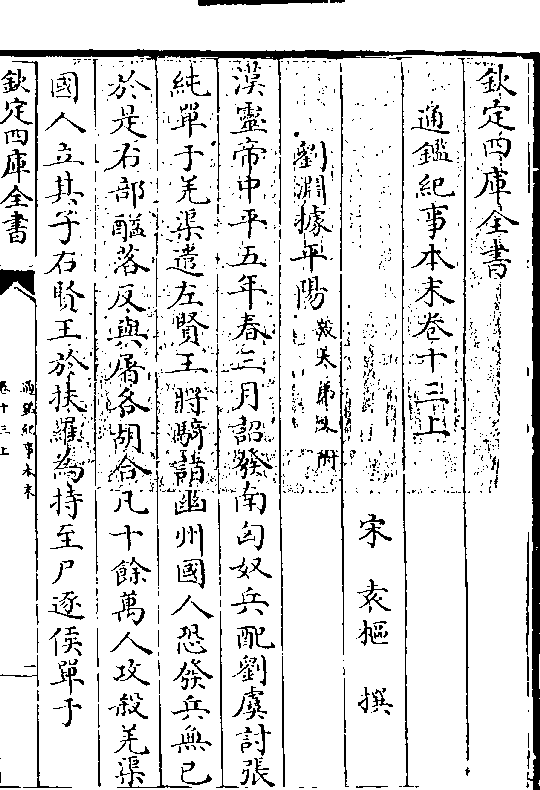 欽定四庫全書
通鑑紀事本末卷十三上
宋 袁樞 撰
劉淵據平陽
漢靈帝中平五年春三月詔發南匈奴兵配劉虞討張
純單于羌渠遣左賢王將騎詣幽州國人恐發兵無已
於是右部䤈落反與屠各胡合凡十餘萬人攻殺羌渠
國人立其子右賢王於扶羅為持至尸逐侯單于
欽定四庫全書
通鑑紀事本末
卷十三上
一